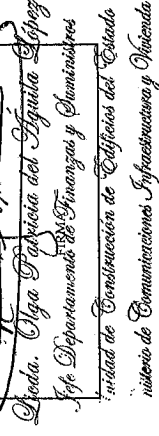 Licda. Olga Patricia del Aguila López
Jefe Departamento de Finanzas y Suministros
FIRMA
Unidad de Construcción de Edificios del Estado
Ministerio de Comunicaciones Infraestructura y Vivienda